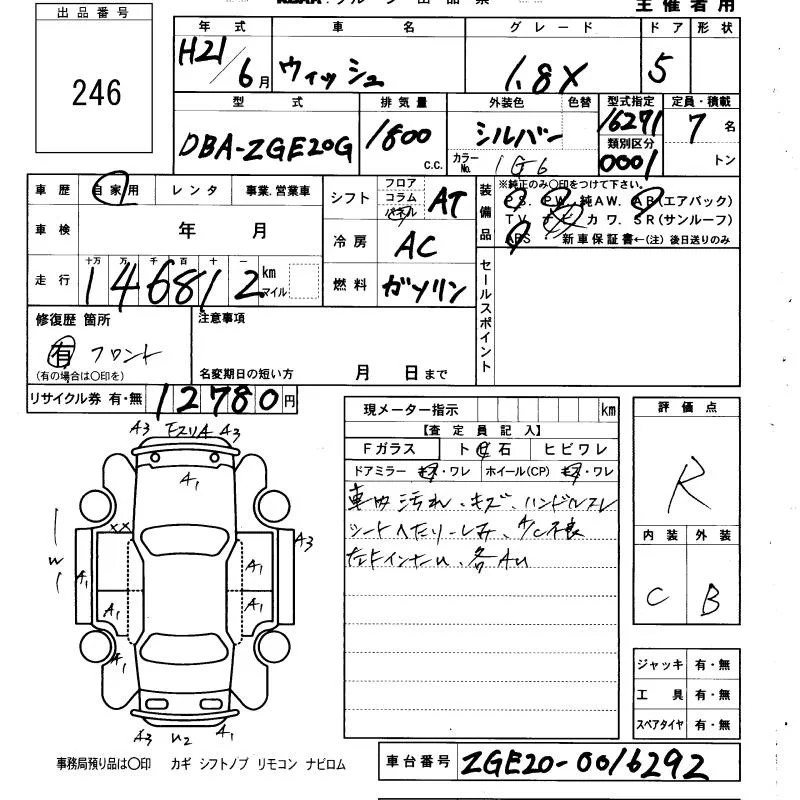 主催者用
出品番号
246
年式 車名 グレード ドア 形状
H21/6月 ウィッシュ 1.8X 5
型式 排気量 外装色 色替 型式指定 定員・積載
DBA-ZGE20G 1800 c.c. シルバー 16271 7名
カラーNo. 1G6 類別区分 0001 トン
車歴 自家用 レンタ 事業.営業車
シフト フロア コラム パネル AT
装備品 ※純正のみ○印をつけて下さい。
PS. PW. 純AW. AB(エアバック)
TV. ナビ. カワ. SR(サンルーフ)
ABS 新車保証書←(注) 後日送りのみ
車検 年 月
冷房 AC
走行 十万 万 千 百 十 一
146812 km マイル
燃料 ガソリン
セールスポイント
修復歴 箇所
有 フロント
(有の場合は○印を)
注意事項
名変期日の短い方 月 日まで
リサイクル券 有・無 12780円
現メーター指示 km
【査定員記入】
Fガラス ト 石 ヒビワレ
ドアミラー キズ・ワレ ホイール(CP) キズ・ワレ
車内汚れ、キズ、ハンドルスレ
シートへたり-しみ、A/C不良
各AU
評価点
R
内装 外装
C B
A3 A3
A1
XX
W
A3
A1 A1
A1 A1
A1
A3 U2 A1
ジャッキ 有・無
工具 有・無
スペアタイヤ 有・無
事務局預り品は○印 カギ シフトノブ リモコン ナビロム
車台番号 ZGE20-0016292